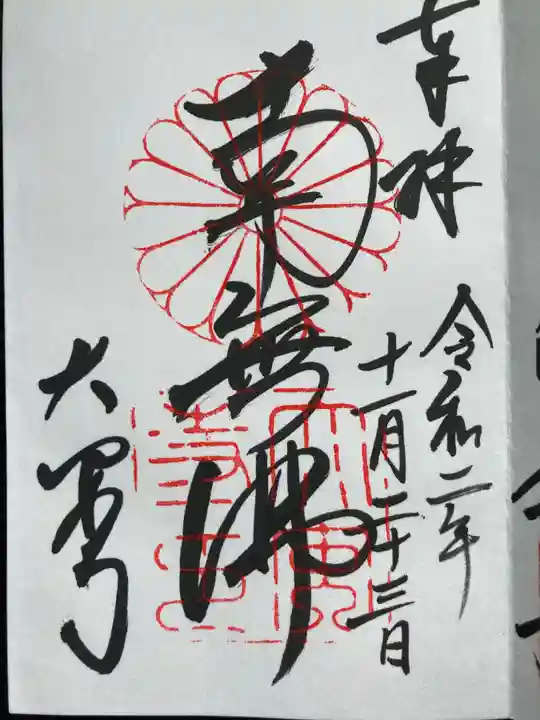 奉拝
令和二年
十一月二十三日
南無佛
大